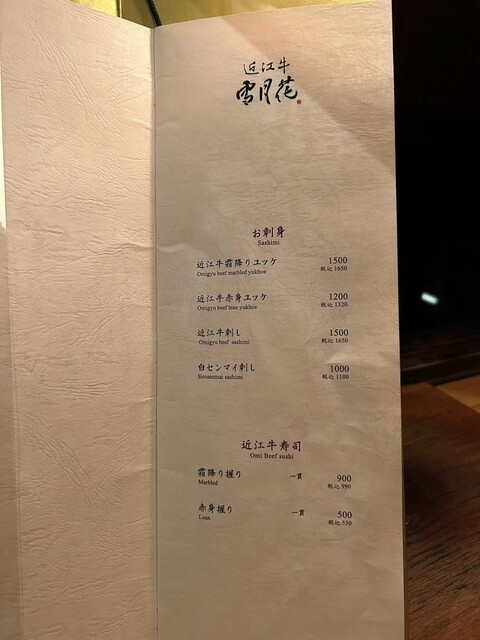 近江牛
雪月花
お刺身
Sashimi
近江牛霜降りユッケ 1500
Omigyu beef marbled yukhoe 税込 1650
近江牛赤身ユッケ 1200
Omigyu beef lean yukhoe 税込 1320
近江牛刺し 1500
Omigyu beef sashimi 税込 1650
白センマイ刺し 1000
Sirosenmai sashimi 税込 1100
近江牛寿司
Omi Beef sushi
霜降り握り 一貫 900
Marbled 税込 990
赤身握り 一貫 500
Lean 税込 550